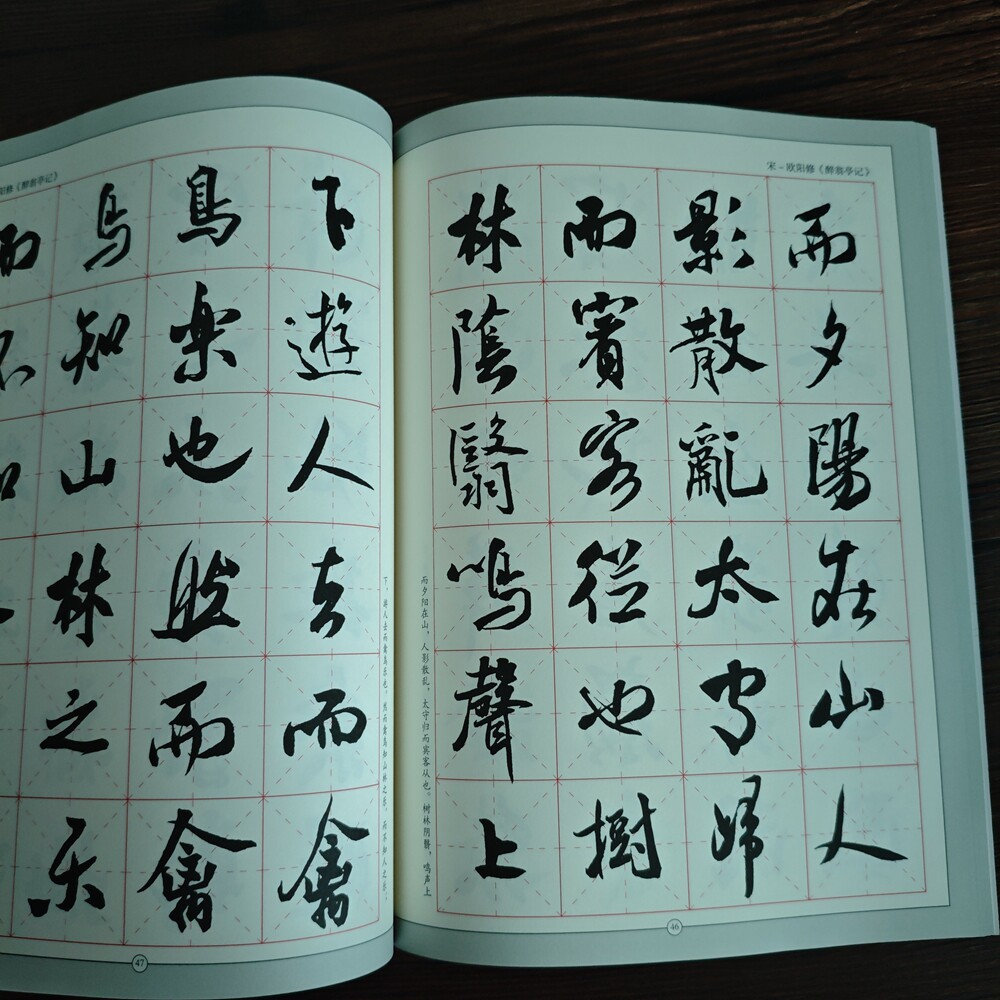 宋-欧阳修《醉翁亭记》
而夕陽在山人
影散亂太守歸
而賓客從也樹
林陰翳鳴聲上
而夕阳在山，人影散乱，太守归而宾客从也。树林阴翳，鸣声上
46
阳修《醉翁亭记》
下遊人去而禽
鳥楽也然而禽
鳥知山林之乐
而不
下，游人去而禽鸟乐也。然而禽鸟知山林之乐，而不知人之乐。
47